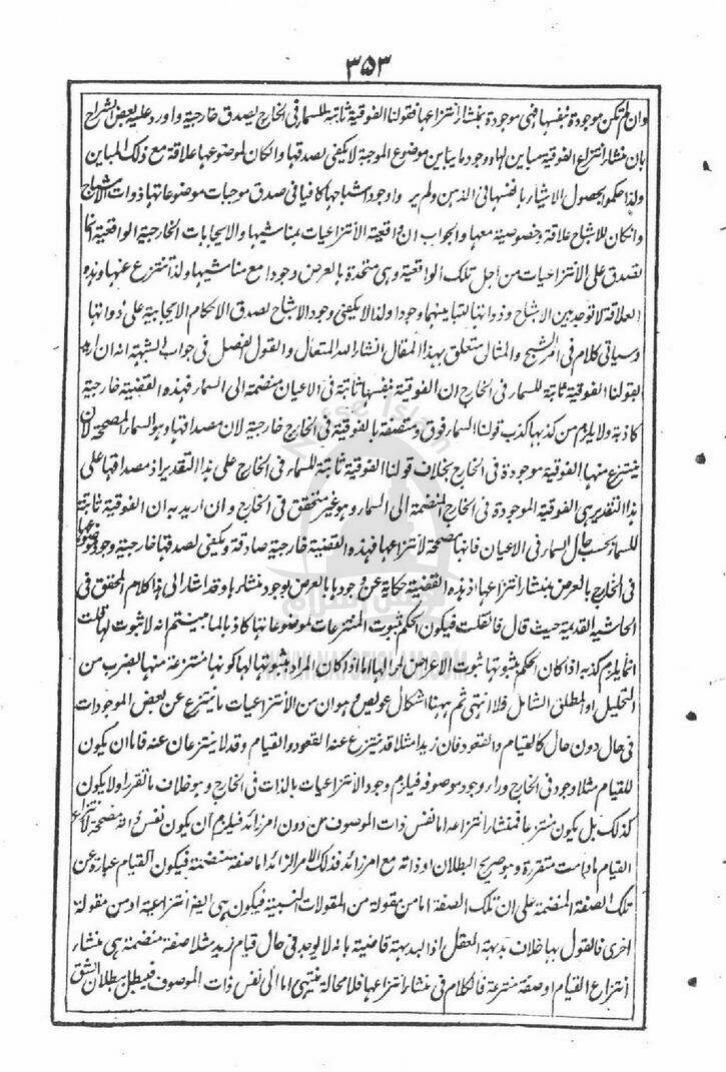 ۳۵۳
وان لم تكن موجودة بنفسها فهي موجودة بمنشأ انتزاعها فقولنا الفوقية ثابتة للسماء في الخارج يصدق خارجية واورد عليه بعض الشراح
بان منشأ انتزاع الفوقية مباين لها ووجود ما يباين موضوع الموجبة لا يكفي لصدقها وان كان لموضوعها علاقة مع ذلك المباين
ولذا حكموا بحصول الاشياء بانفسها في الذهن ولم يروا وجود اشباحها كافيا في صدق موجبات موضوعاتها ذوات الاشباح
وان كان للاشباح علاقة وخصوصية معها والجواب ان واقعية الانتزاعيات بمناشيها والايجابات الخارجية الواقعية انما
تصدق على الانتزاعيات من اجل تلك الواقعية وهي متحدة بالعرض وجودا مع مناشيها ولذا تنتزع عنها وهذه
العلاقة لا توجد بين الاشباح وذواتها لتباينهما وجودا ولذا لا يكفي وجود الاشباح لصدق الاحكام الايجابية على ذواتها
وسياتي كلام في امر الشبح والمثال متعلق بهذا المقال انشاء الله المتعال والقول الفصل في جواب الشبهة انه ان اريد
بقولنا الفوقية ثابتة للسماء في الخارج ان الفوقية بنفسها ثابتة في الاعيان منضمة الى السماء فهذه القضية خارجية
كاذبة ولا يلزم من كذبها كذب قولنا السماء فوق ومتصفة بالفوقية في الخارج خارجية لان مصداقها وهو السماء المصححة لان
ينتزع منها الفوقية موجودة في الخارج بخلاف قولنا الفوقية ثابتة للسماء في الخارج على هذا التقدير اذ مصداقها على
هذا التقدير هي الفوقية الموجودة في الخارج المنضمة الى السماء وهو غير متحقق في الخارج وان اريد به ان الفوقية ثابتة
للسماء بحسب حال السماء في الاعيان فانها مصححة لانتزاعها فهذه القضية خارجية صادقة ويكفي لصدقها خارجية وجود موضوعها
في الخارج بالعرض بمنشأ انتزاعها اذ هذه القضية حكاية عن وجودها بالعرض بوجود منشأها وقد اشار الى هذا كلام المحقق في
الحاشية القديمة حيث قال فان قلت فيكون الحكم بثبوت المنتزعات لموضوعاتها كاذبا لما بينتم انه لا ثبوت لها قلت
انما يلزم كذبه اذا كان الحكم بثبوتها ثبوت الاعراض لمحالها اما اذا كان المراد بثبوتها لها كونها منتزعة منها بضرب من
التحليل او المطلق الشامل فلا انتهى ثم ههنا اشكال عويص وهو ان من الانتزاعيات ما ينتزع عن بعض الموجودات
في حال دون حال كالقيام والقعود فان زيدا مثلا قد ينتزع عنه القعود والقيام وقد لا ينتزعان عنه فاما ان يكون
للقيام مثلا وجود في الخارج وراء وجود موصوفه فيلزم وجود الانتزاعيات بالذات في الخارج وهو خلاف ما تقرر او لا يكون
كذلك بل يكون منتزعا فمنشأ انتزاعه اما نفس ذات الموصوف من دون امر زائد فيلزم ان يكون نفس ذاته مصححة لانتزاع
القيام ما دامت متقررة وهو صريح البطلان او ذاته مع امر زائد فذلك الامر الزائد اما صفة منضمة فيكون القيام عبارة عن
تلك الصفة المنضمة على ان تلك الصفة اما من مقولة من المقولات النسبية فيكون هي ايضا انتزاعية او من مقولة
اخرى فالقول بها خلاف بديهة العقل اذ البديهة قاضية بانه لا يوجد في حال قيام زيد مثلا صفة منضمة هي منشأ
انتزاع القيام او صفة منتزعة فالكلام في منشأ انتزاعها فلا محالة ينتهي اما الى نفس ذات الموصوف فيبطل ببطلان الشق
WWW.NAFSEISLAM.COM